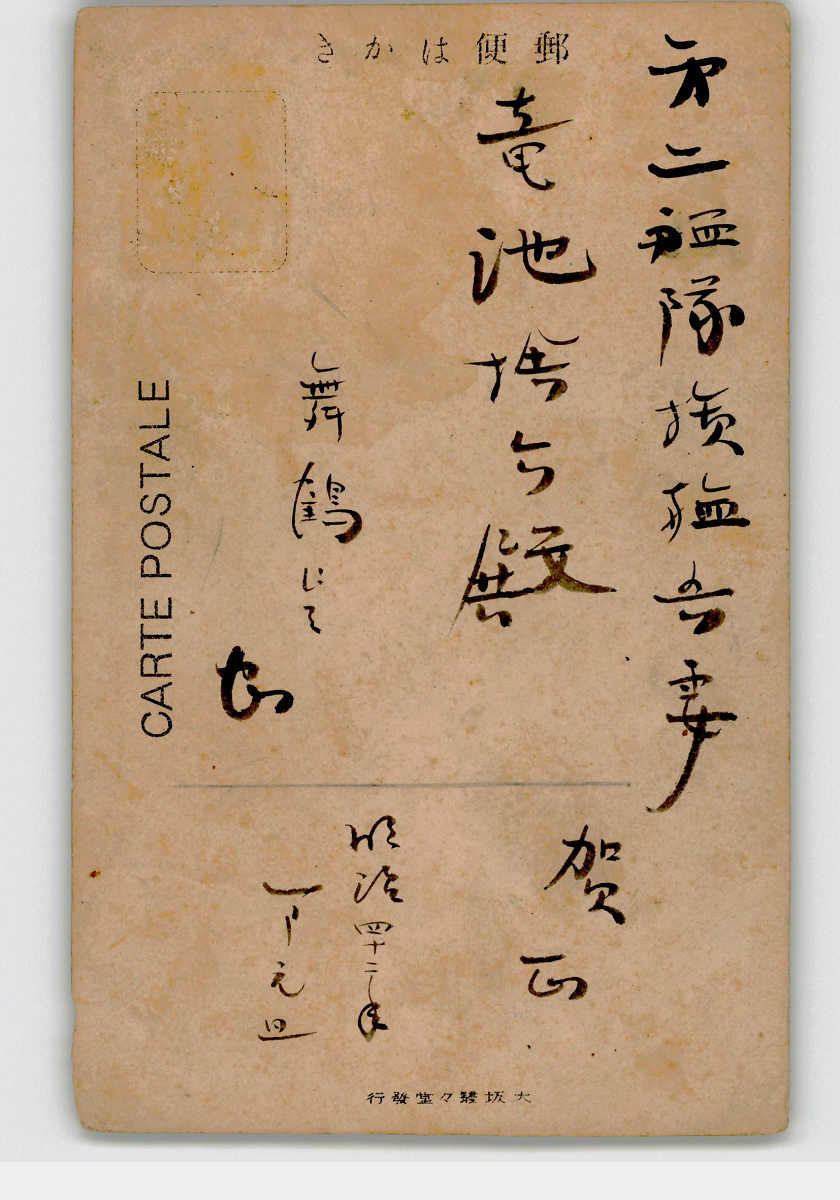 郵便はがき
第二艦隊旗艦吾妻
竜池捨今殿
舞鶴にて
賀正
明治四十二年
一月元旦
CARTE POSTALE
大坂馨々堂發行